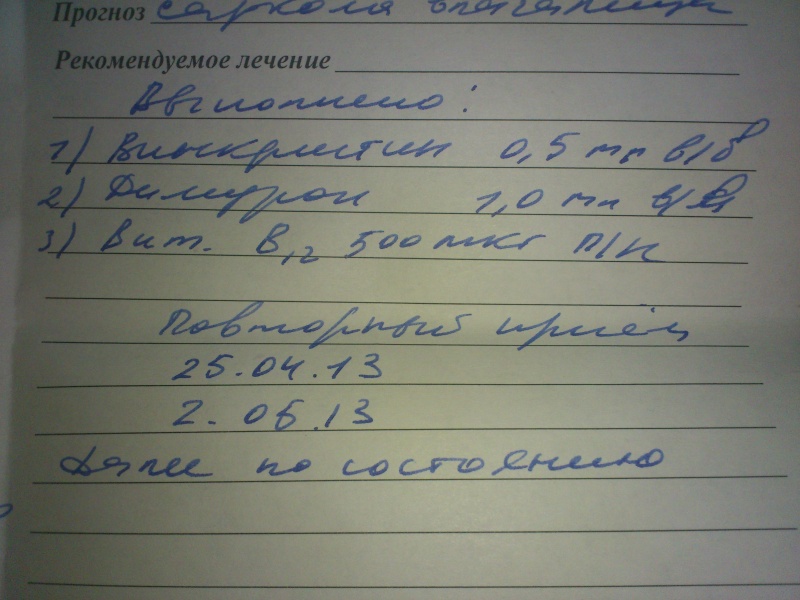 Прогноз саркома влагалища
Рекомендуемое лечение
Выполнено:
1) Винкристин 0,5 мл в/в
2) Димедрол 1,0 мл в/м
3) Вит. В12 500 мкг п/к
Повторный приём
25.04.13
2.05.13
Далее по состоянию